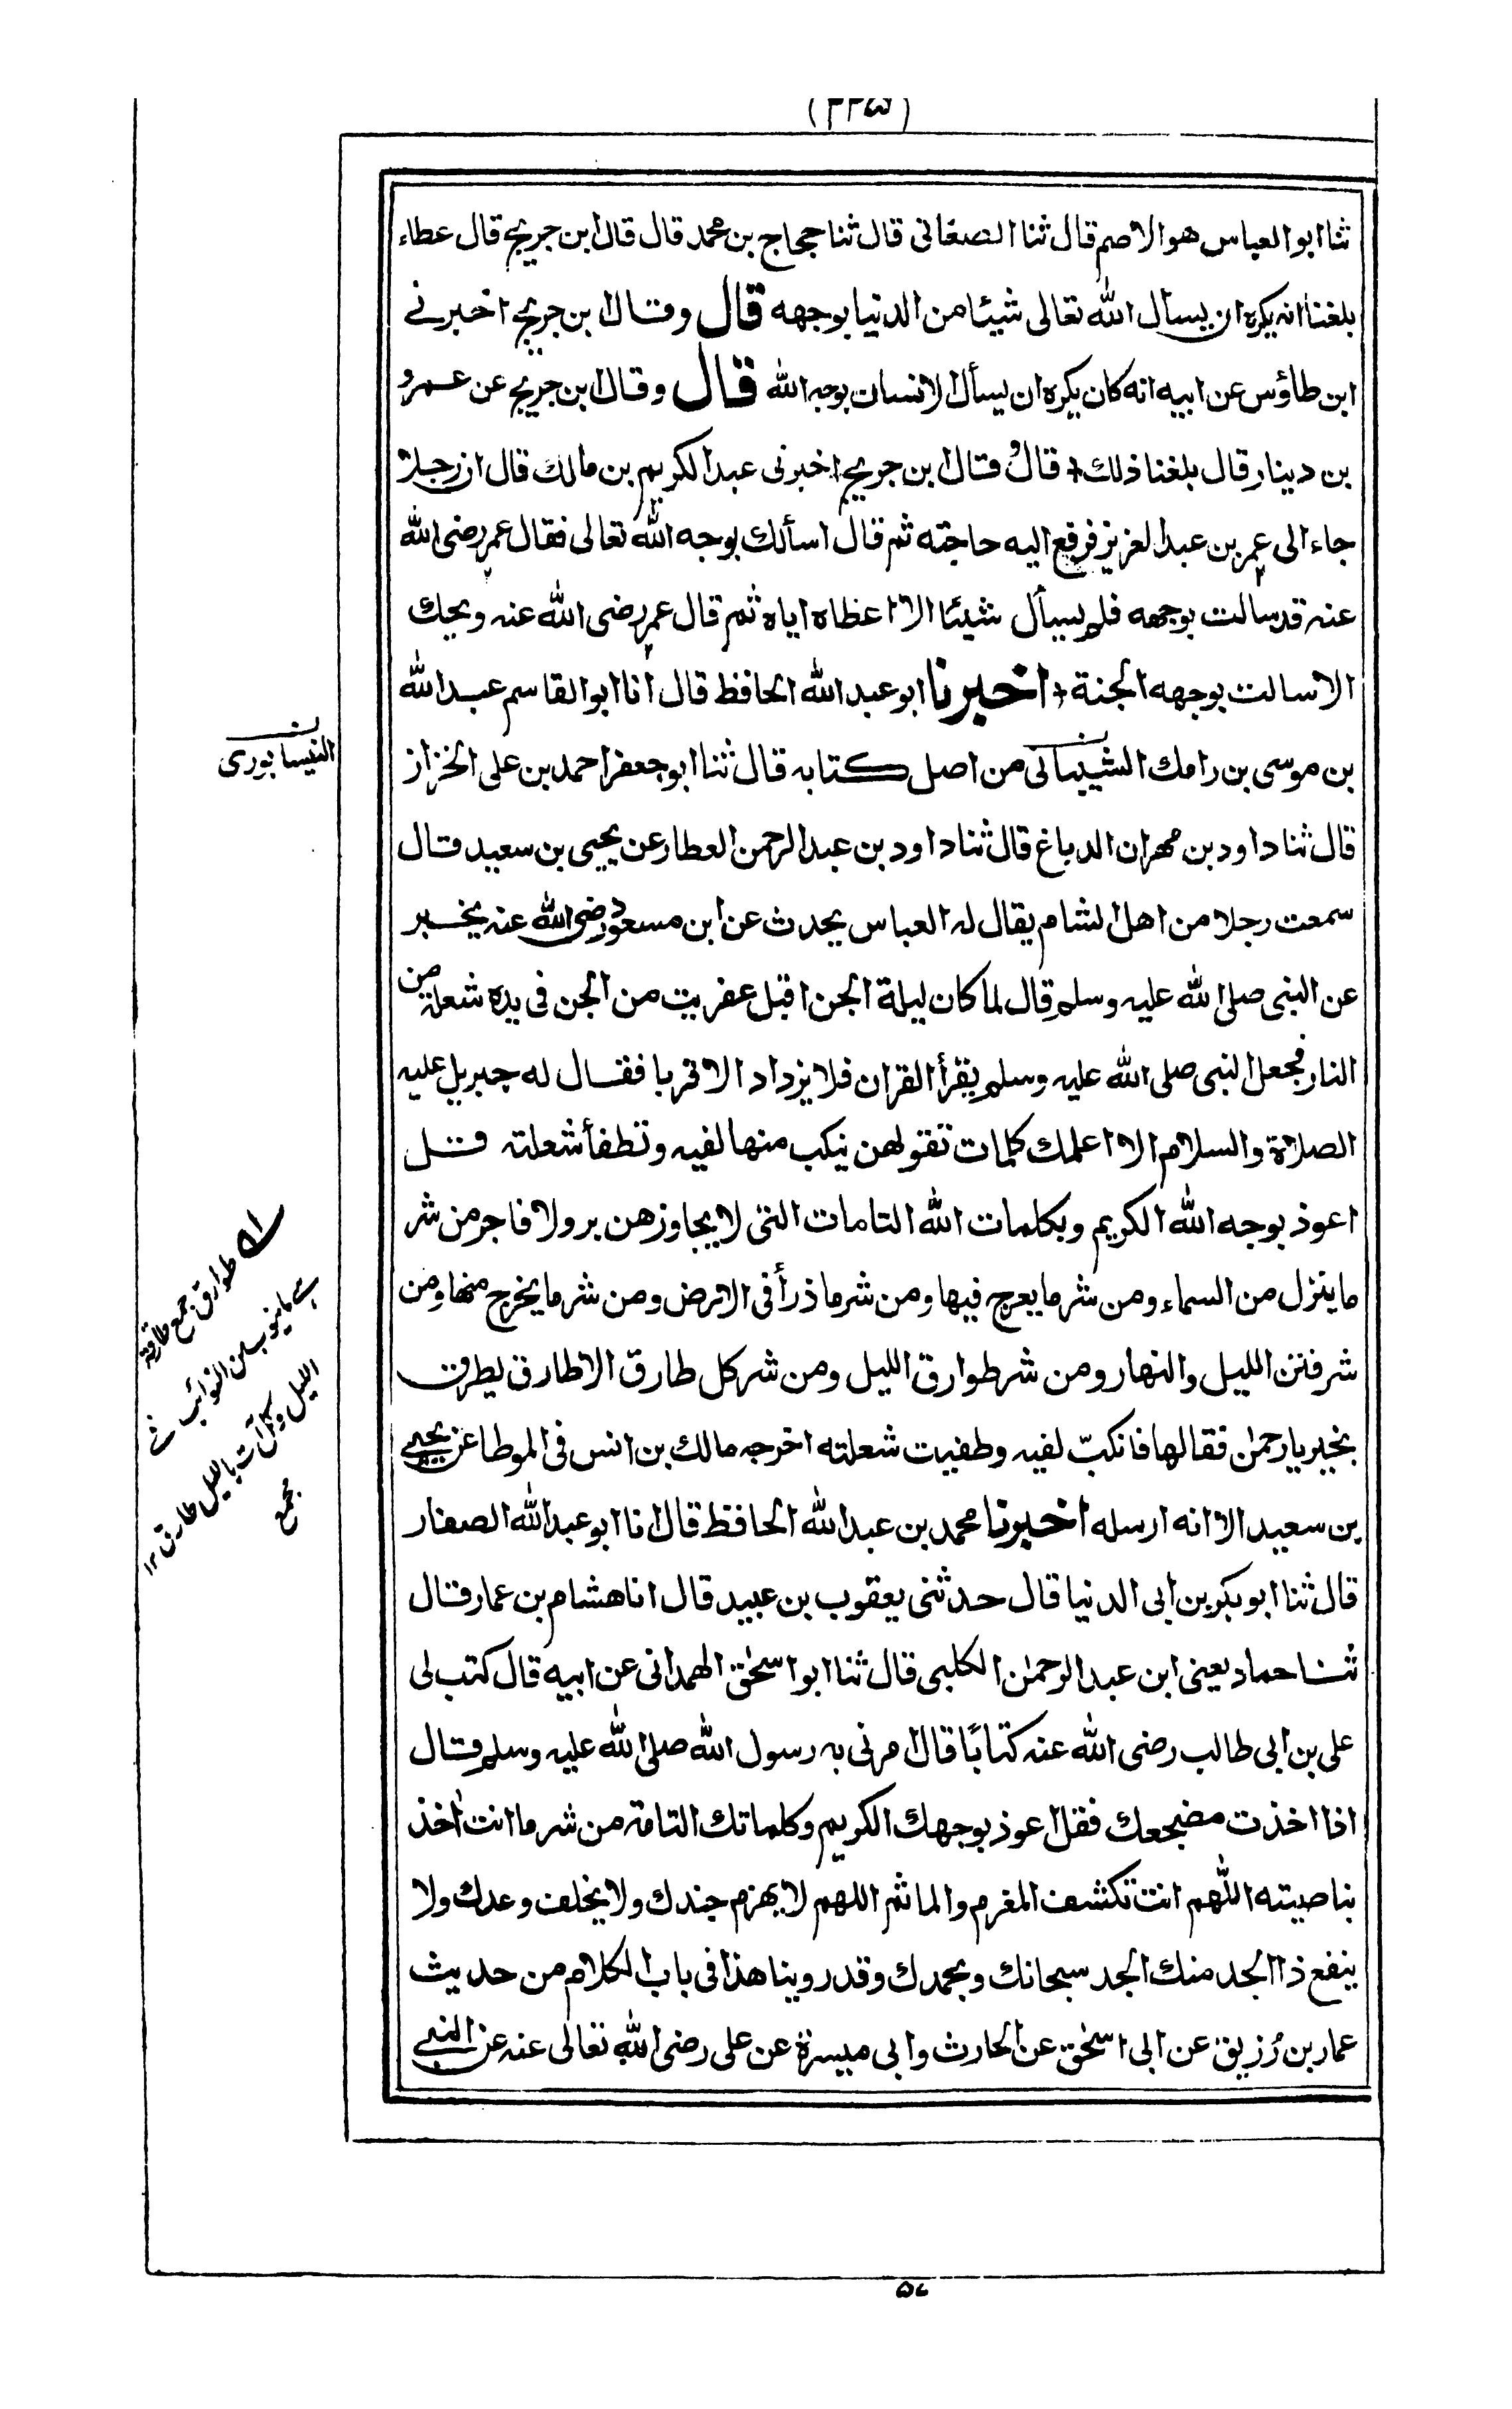 (٢٢٥)
ثنا ابو العباس هو الاصم قال ثنا الصغانى قال ثنا حجاج بن محمد قال قال ابن جريج قال عطاء
بلغنا انه يكره ان يسأل الله تعالى شيئا من الدنيا بوجهه قال وقال ابن جريج اخبرنى
ابن طاؤس عن ابيه انه كان يكره ان يسأل الانسان بوجه الله قال وقال ابن جريج عن عمرو
بن دينار قال بلغنا ذلك قال وقال ابن جريج اخبرنى عبد الكريم بن مالك قال ان رجلا
جاء الى عمر بن عبد العزيز فرفع اليه حاجته ثم قال اسألك بوجه الله تعالى فقال عمر رضى الله
عنه قد سالت بوجهه فلم يسأل شيئا الا اعطاه اياه ثم قال عمر رضى الله عنه ويحك
الا سالت بوجهه الجنة اخبرنا ابو عبد الله الحافظ قال انا ابو القاسم عبد الله
بن موسى بن رامك الشيبانى من اصل كتابه قال ثنا ابو جعفر احمد بن على الخزاز
النيسابورى
قال ثنا داود بن مهران الدباغ قال ثنا داود بن عبد الرحمن العطار عن يحيى بن سعيد قال
سمعت رجلا من اهل الشام يقال له العباس يحدث عن ابن مسعود رضى الله عنه يخبر
عن النبى صلى الله عليه وسلم قال لما كان ليلة الجن اقبل عفريت من الجن فى يده شعلة من
النار فجعل النبى صلى الله عليه وسلم يقرأ القران فلا يزداد الا قربا فقال له جبريل عليه
الصلاة والسلام الا اعلمك كلمات تقولهن ينكب منها لفيه وتطفأ شعلته قل
اعوذ بوجه الله الكريم وبكلمات الله التامات التى لا يجاوزهن بر ولا فاجر من شر
ما ينزل من السماء ومن شر ما يعرج فيها ومن شر ما ذرأ فى الارض ومن شر ما يخرج منها ومن
شر فتن الليل والنهار ومن شر طوارق الليل ومن شر كل طارق الا طارق يطرق
بخير يا رحمن فقالها فانكبّ لفيه وطفيت شعلته اخرجه مالك بن انس فى الموطا عن يحيى
بن سعيد الا انه ارسله اخبرنا محمد بن عبد الله الحافظ قال انا ابو عبد الله الصفار
قال ثنا ابو بكر بن ابى الدنيا قال حدثنى يعقوب بن عبيد قال انا هشام بن عمار قال
ثنا حماد يعنى ابن عبد الرحمن الكلبى قال ثنا ابو اسحٰق الهمدانى عن ابيه قال كتب لى
على بن ابى طالب رضى الله عنه كتابًا قال امرنى به رسول الله صلى الله عليه وسلم قال
اذا اخذت مضجعك فقل اعوذ بوجهك الكريم وكلماتك التامة من شر ما انت اٰخذ
بناصيته اللّٰهم انت تكشف المغرم والماثم اللهم لا يهزم جندك ولا يخلف وعدك ولا
ينفع ذا الجد منك الجد سبحانك وبحمدك وقد روينا هذا فى باب الكلام من حديث
عمار بن رُزيق عن ابى اسحٰق عن الحارث وابى ميسرة عن على رضى الله تعالى عنه عن النبى
له طوارق جمع طارقة
اے ما ينوب من النوائب فى
الليل وكل آت بالليل طارق ١٢
مجمع
٥٧